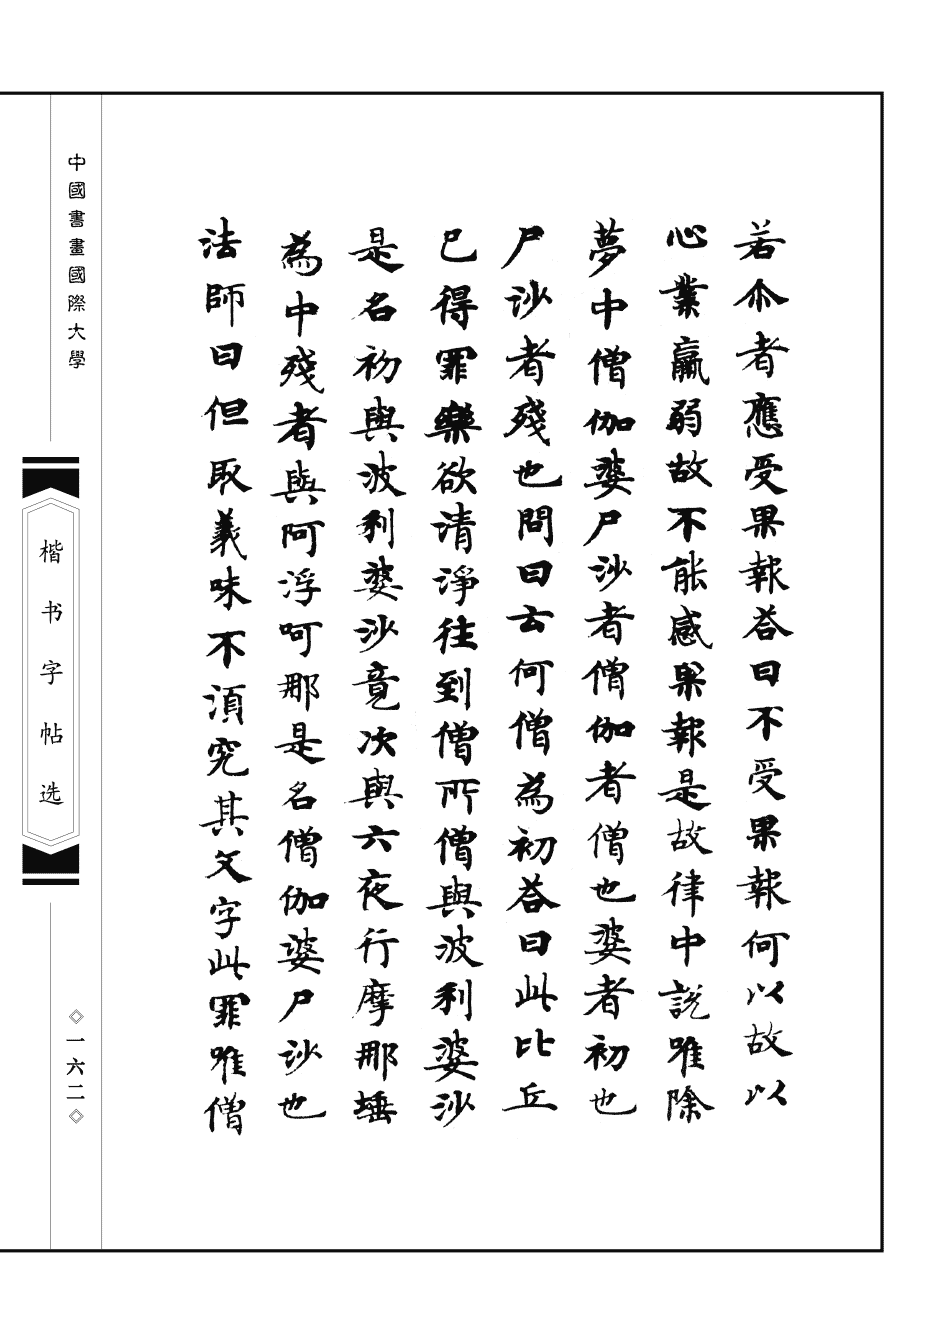 若尒者應受果報荅曰不受果報何以故以
心業羸弱故不能感果報是故律中說唯除
夢中僧伽婆尸沙者僧伽者僧也婆者初也
尸沙者殘也問曰云何僧為初荅曰此比丘
已得罪樂欲清淨往到僧所僧與波利婆沙
是名初與波利婆沙竟次與六夜行摩那埵
為中殘者與阿浮呵那是名僧伽婆尸沙也
法師曰但取義味不須究其文字此罪唯僧
中國書畫國際大學
楷书字帖选
◇一六二◇